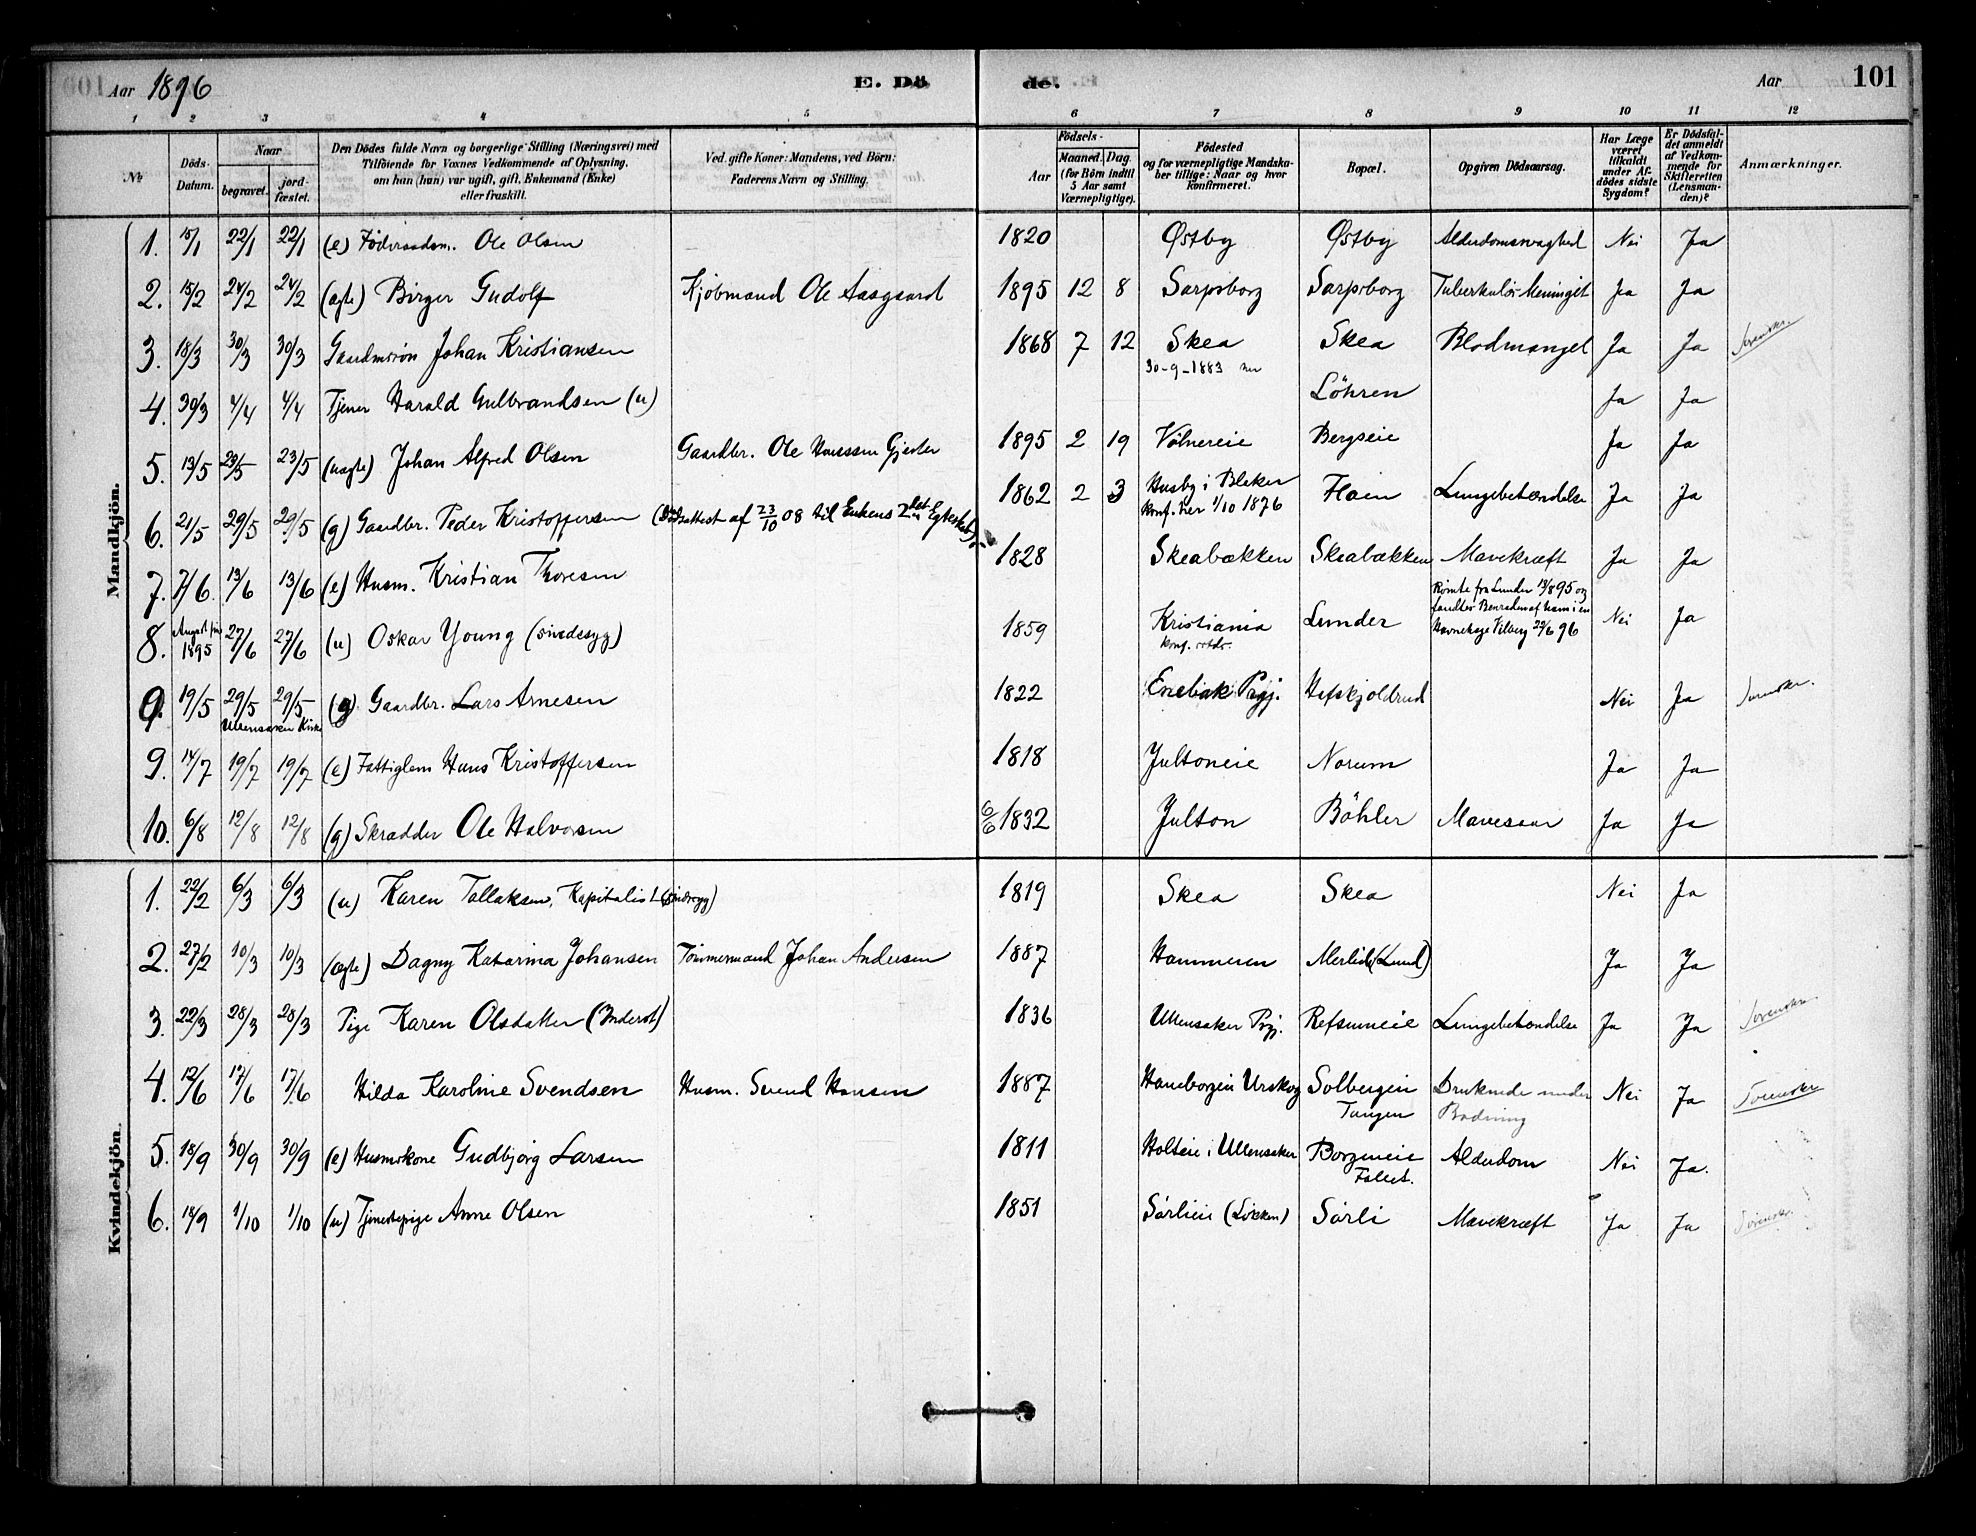 Aar 1896 E. Döde. Aar 101
1 2 3 4 5 6 7 8 9 10 11 12
No
Döds-Datum.
Naar
begravet.
jord-fæstet.
Den Dödes fulde Navn og borgerlige Stilling (Næringsvei) med
Tilföiende for Voxnes Vedkommende af Oplysning,
om han (hun) var ugift, gift, Enkemand (Enke)
eller fraskilt.
Ved gifte Koner: Mandens, ved Börn:
Faderens Navn og Stilling.
Födsels-
Aar
Maaned. Dag.
(for Börn indtil
5 Aar samt
Værnepligtige).
Födested
og for værnepligtige Mandska-
ber tillige: Naar og hvor
konfirmeret.
Bopæl.
Opgiven Dödsaarsag.
Har Læge
været
tilkaldt
under Af-
dödes sidste
Sygdom?
Er Dödsfal-
det anmeldt
af Vedkom-
mende for
Skifteretten
(Lensman-
den)?
Anmærkninger.
Mandkjön.
1. 15/1 22/1 22/1 (e) Föderaadsm. Ole Olsen 1820 Østby Østby Alderdomssvaghed Nei Ja
2. 15/2 24/2 24/2 (ægte) Birger Gudolf Kjöbmand Ole Aasgaard 1895 12 8 Sarpsborg Sarpsborg Tuberkulös Meninget Ja Ja
3. 18/3 30/3 30/3 Gaardmsön Johan Kristiansen 1868 7 12 Skea Skea Blodmangel Ja Ja Sorenskr.
30-9-1883 her
4. 30/3 4/4 4/4 Tjener Harald Gulbrandsen (u) Löhren Ja Ja
5. 13/5 23/5 23/5 (uægte) Johan Alfred Olsen Gaardbr. Ole Hanssen Gjester 1895 2 19 Volnereie Bergseie Ja Ja
6. 21/5 29/5 29/5 (g) Gaardbr. Peder Kristoffersen (Dödsattest af 23/10 08 til Enkens 2det Egteskab) 1862 2 3 Husby i Blaker Lungebetændelse Ja Ja
konf. her 1/10 1876
7. 7/6 13/6 13/6 (e) Husm. Kristian Thoresen 1828 Skeabækken Skeabækken Mavekræft Ja Ja
8. 1895 27/6 27/6 (u) Oskar Young (sindssyg) 1859 Kristiania Lunder Nei Ja
Römte fra Lunder 13/8 95 og
fandtes Benraden af ham i en
Havnehage Vilberg 22/6 96
9. 19/5 29/5 29/5 (g) Gaardbr. Lars Arnesen 1822 Enebak Prgj. Hefskjoldrud Nei Ja Sorenskr.
Ullensaker Kirke
9. 14/7 19/7 19/7 (e) Fattiglem Hans Kristoffersen 1818 Jultoneie Norum Ja Ja
10. 6/8 12/8 12/8 (g) Skrædder Ole Halvorsen 6/6 1832 Julton Böhler Mavesaar Ja Ja
Kvindekjön.
1. 22/2 6/3 6/3 (u) Karen Tollaksen, Kapitalist (sindssyg) 1819 Skea Skea Nei Ja
2. 27/2 10/3 10/3 (ægte) Dagny Katarina Johansen Tömmermand Johan Andersen 1887 Hammeren Merlid (Lund) Ja Ja
3. 22/3 28/3 28/3 Pige Karen Olsdatter (Inderst) 1836 Ullensaker Prgj. Refsumeie Lungebetændelse Ja Ja Sorenskr.
4. 12/6 17/6 17/6 Hilda Karoline Svendsen Husm. Svend Hansen 1887 Haneborgeie Urskog Solbergeie Druknede under Nei Ja Sorenskr.
Tangen Badning
5. 18/9 30/9 30/9 (e) Husmskone Gudbjörg Larsen 1811 Holteie i Ullensaker Borgeneie Alderdom Nei Ja.
Fallet.
6. 18/9 1/10 1/10 (u) Tjenestepige Anne Olsen 1851 Sörlieie (Lökken) Sörli Mavekræft Ja Ja Sorenskr.